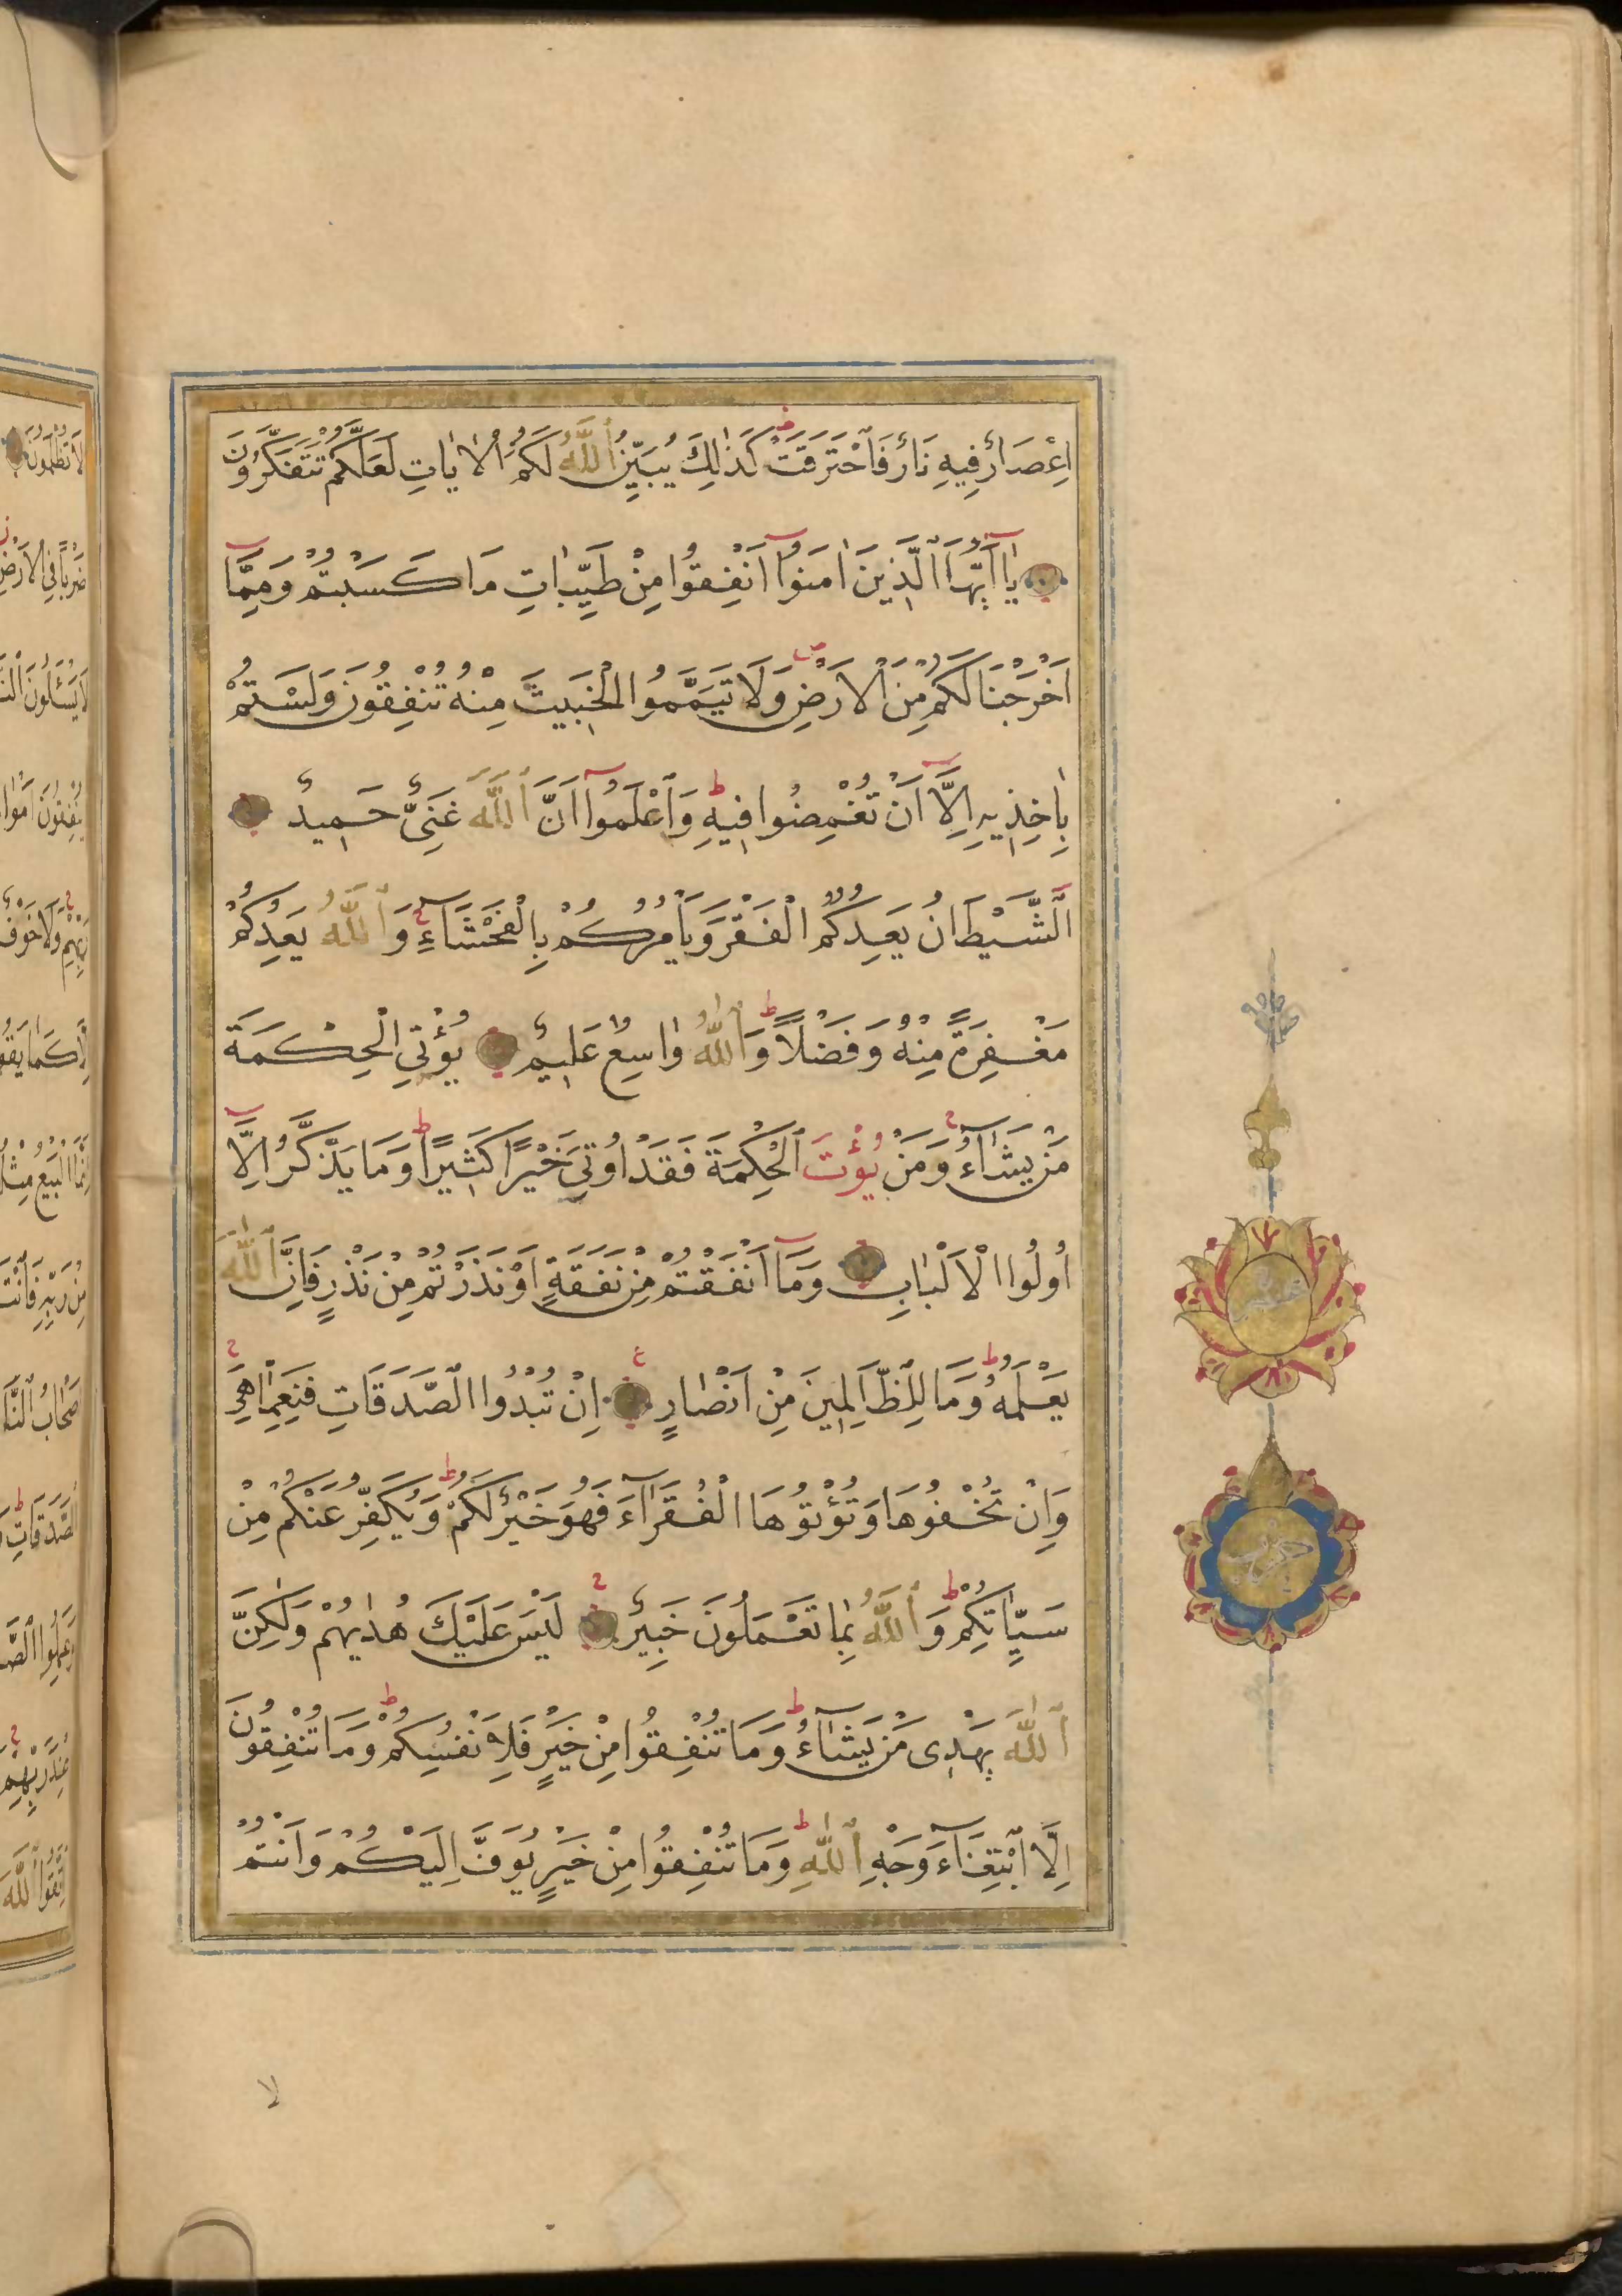 اِعْصَارٌ فِيهِ نَارٌ فَاحْتَرَقَتْ كَذٰلِكَ يُبَيِّنُ اللّٰهُ لَكُمُ الْاٰيَاتِ لَعَلَّكُمْ تَتَفَكَّرُونَ
يَا اَيُّهَا الَّذِينَ اٰمَنُوا اَنْفِقُوا مِنْ طَيِّبَاتِ مَا كَسَبْتُمْ وَمِمَّا
اَخْرَجْنَا لَكُمْ مِنَ الْاَرْضِ وَلَا تَيَمَّمُوا الْخَبِيثَ مِنْهُ تُنْفِقُونَ وَلَسْتُمْ
بِاٰخِذِيهِ اِلَّا اَنْ تُغْمِضُوا فِيهِ وَاعْلَمُوا اَنَّ اللّٰهَ غَنِىٌّ حَمِيدٌ
اَلشَّيْطَانُ يَعِدُكُمُ الْفَقْرَ وَيَاْمُرُكُمْ بِالْفَحْشَاءِ وَاللّٰهُ يَعِدُكُمْ
مَغْفِرَةً مِنْهُ وَفَضْلًا وَاللّٰهُ وَاسِعٌ عَلِيمٌ يُؤْتِي الْحِكْمَةَ
مَنْ يَشَاءُ وَمَنْ يُؤْتَ الْحِكْمَةَ فَقَدْ اُوتِيَ خَيْرًا كَثِيرًا وَمَا يَذَّكَّرُ اِلَّا
اُولُوا الْاَلْبَابِ وَمَا اَنْفَقْتُمْ مِنْ نَفَقَةٍ اَوْ نَذَرْتُمْ مِنْ نَذْرٍ فَاِنَّ اللّٰهَ
يَعْلَمُهُ وَمَا لِلظَّالِمِينَ مِنْ اَنْصَارٍ اِنْ تُبْدُوا الصَّدَقَاتِ فَنِعِمَّا هِيَ
وَاِنْ تُخْفُوهَا وَتُؤْتُوهَا الْفُقَرَاءَ فَهُوَ خَيْرٌ لَكُمْ وَيُكَفِّرُ عَنْكُمْ مِنْ
سَيِّاٰتِكُمْ وَاللّٰهُ بِمَا تَعْمَلُونَ خَبِيرٌ لَيْسَ عَلَيْكَ هُدٰيهُمْ وَلٰكِنَّ
اللّٰهَ يَهْدِى مَنْ يَشَاءُ وَمَا تُنْفِقُوا مِنْ خَيْرٍ فَلِاَنْفُسِكُمْ وَمَا تُنْفِقُونَ
اِلَّا ابْتِغَاءَ وَجْهِ اللّٰهِ وَمَا تُنْفِقُوا مِنْ خَيْرٍ يُوَفَّ اِلَيْكُمْ وَاَنْتُمْ
لا